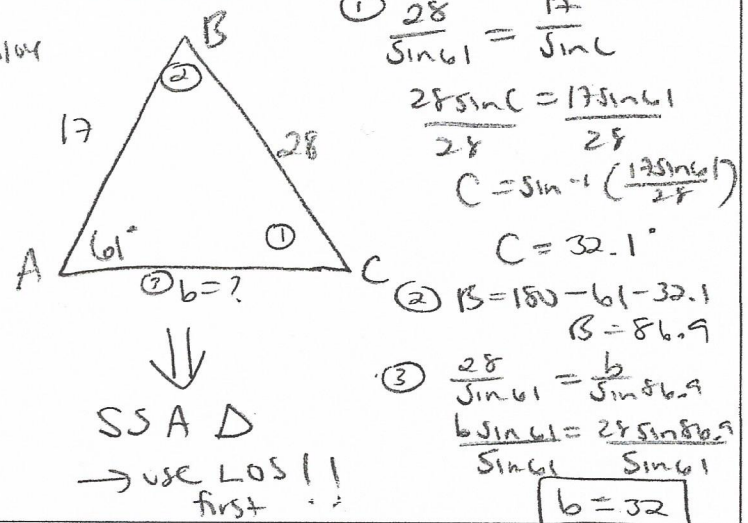 B
②
17
28
A
61°
①
C
③ b = ?
⇓
SSA Δ
→ use LOS!!
first
① 28/Sin61 = 17/SinC
28SinC/28 = 17Sin61/28
C = Sin⁻¹(17Sin61/28)
C = 32.1°
② B = 180 - 61 - 32.1
B = 86.9
③ 28/Sin61 = b/Sin86.9
bSin61/Sin61 = 28Sin86.9/Sin61
b = 32